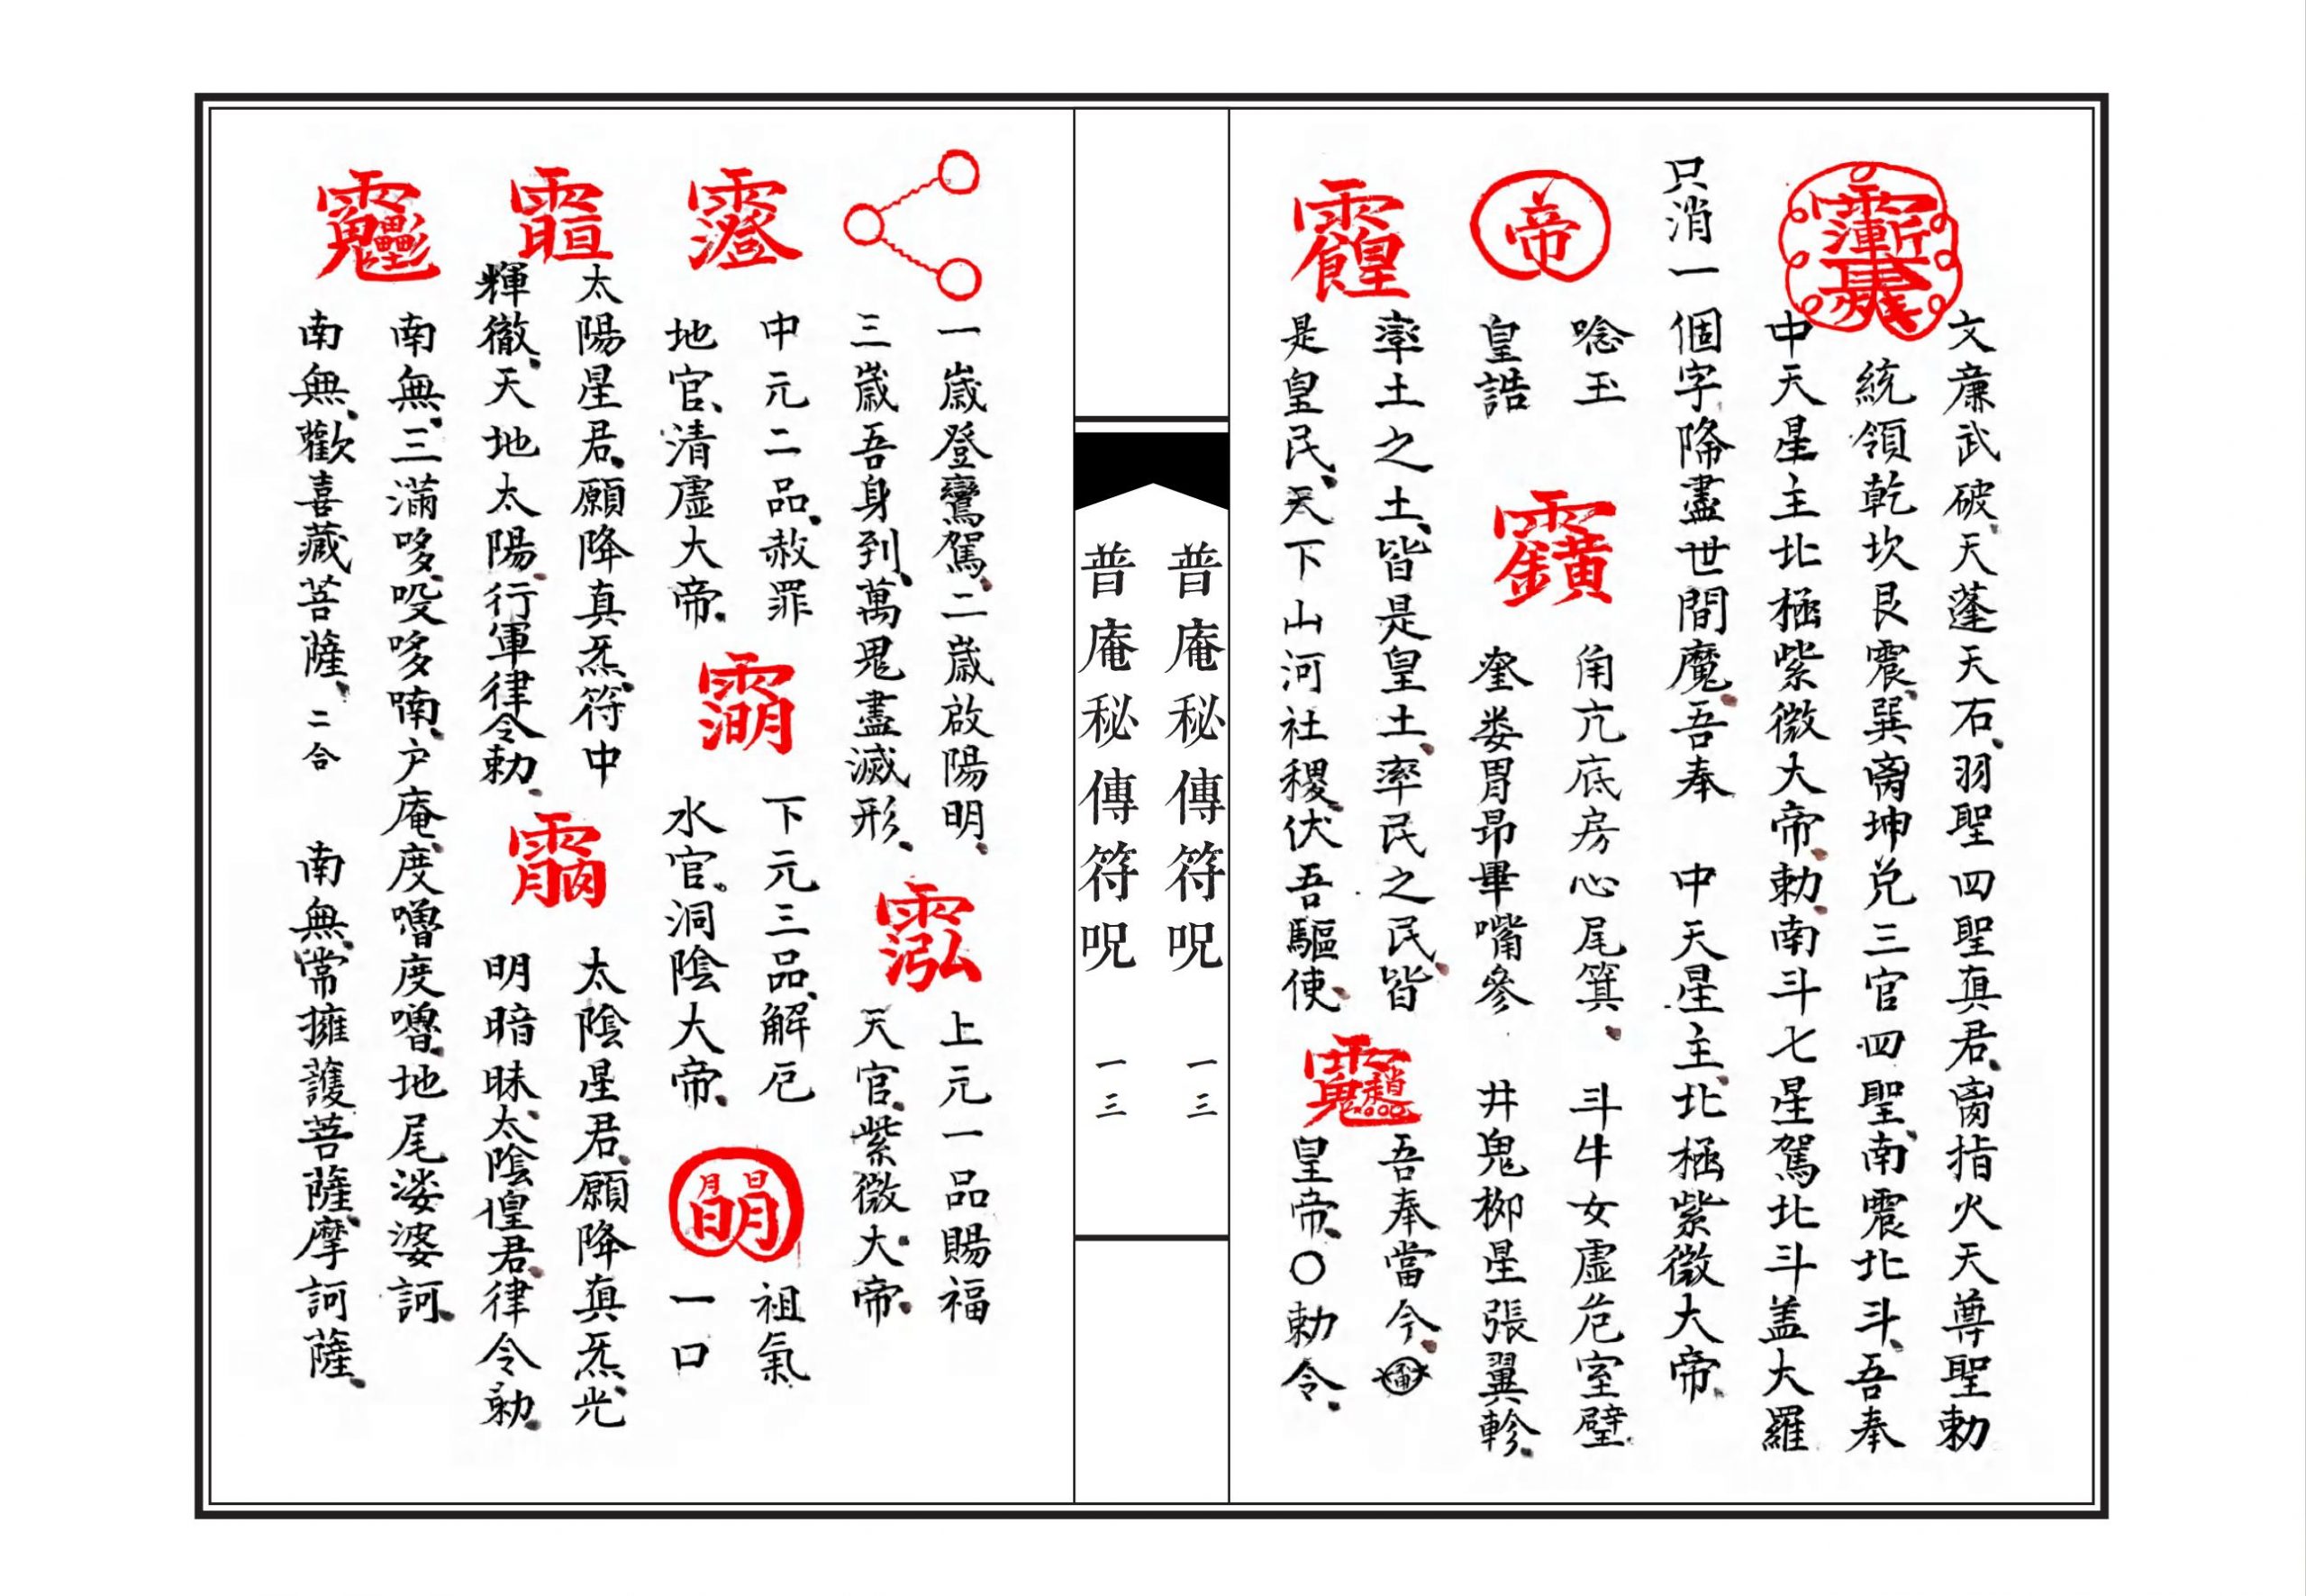 文㢘武破天蓬天石羽聖四聖真君离指火天尊聖勅
統領乾坎艮震巽离坤兌三官四聖南震北斗吾奉
中天星主北極紫微大帝勅南斗七星駕北斗盖大羅
只消一個字降盡世間魔吾奉 中天星主北極紫微大帝
帝
唸玉
皇誥
角亢底房心尾箕 斗牛女虛危室壁
奎娄胃昴畢嘴參 井鬼柳星張翼軫
率土之土皆是皇土率民之民皆
是皇民天下山河社稷伏吾驅使
吾奉當今
皇帝〇勅令
普庵秘傳符呪 一三
普庵秘傳符呪 一三
一歲登鸞駕二歲啟陽明
三歲吾身到萬鬼盡滅形
上元一品賜福
天官紫微大帝
中元二品赦罪
地官清虛大帝
下元三品解厄
水官洞陰大帝
祖氣
一口
太陽星君願降真炁符中
輝徹天地太陽行軍律令勅
太陰星君願降真炁光
明暗昧太陰皇君律令勅
南無三滿哆哆喃户庵度嚕度嚕地尾婆訶
南無歡喜藏菩薩二合 南無常擁護菩薩摩訶薩